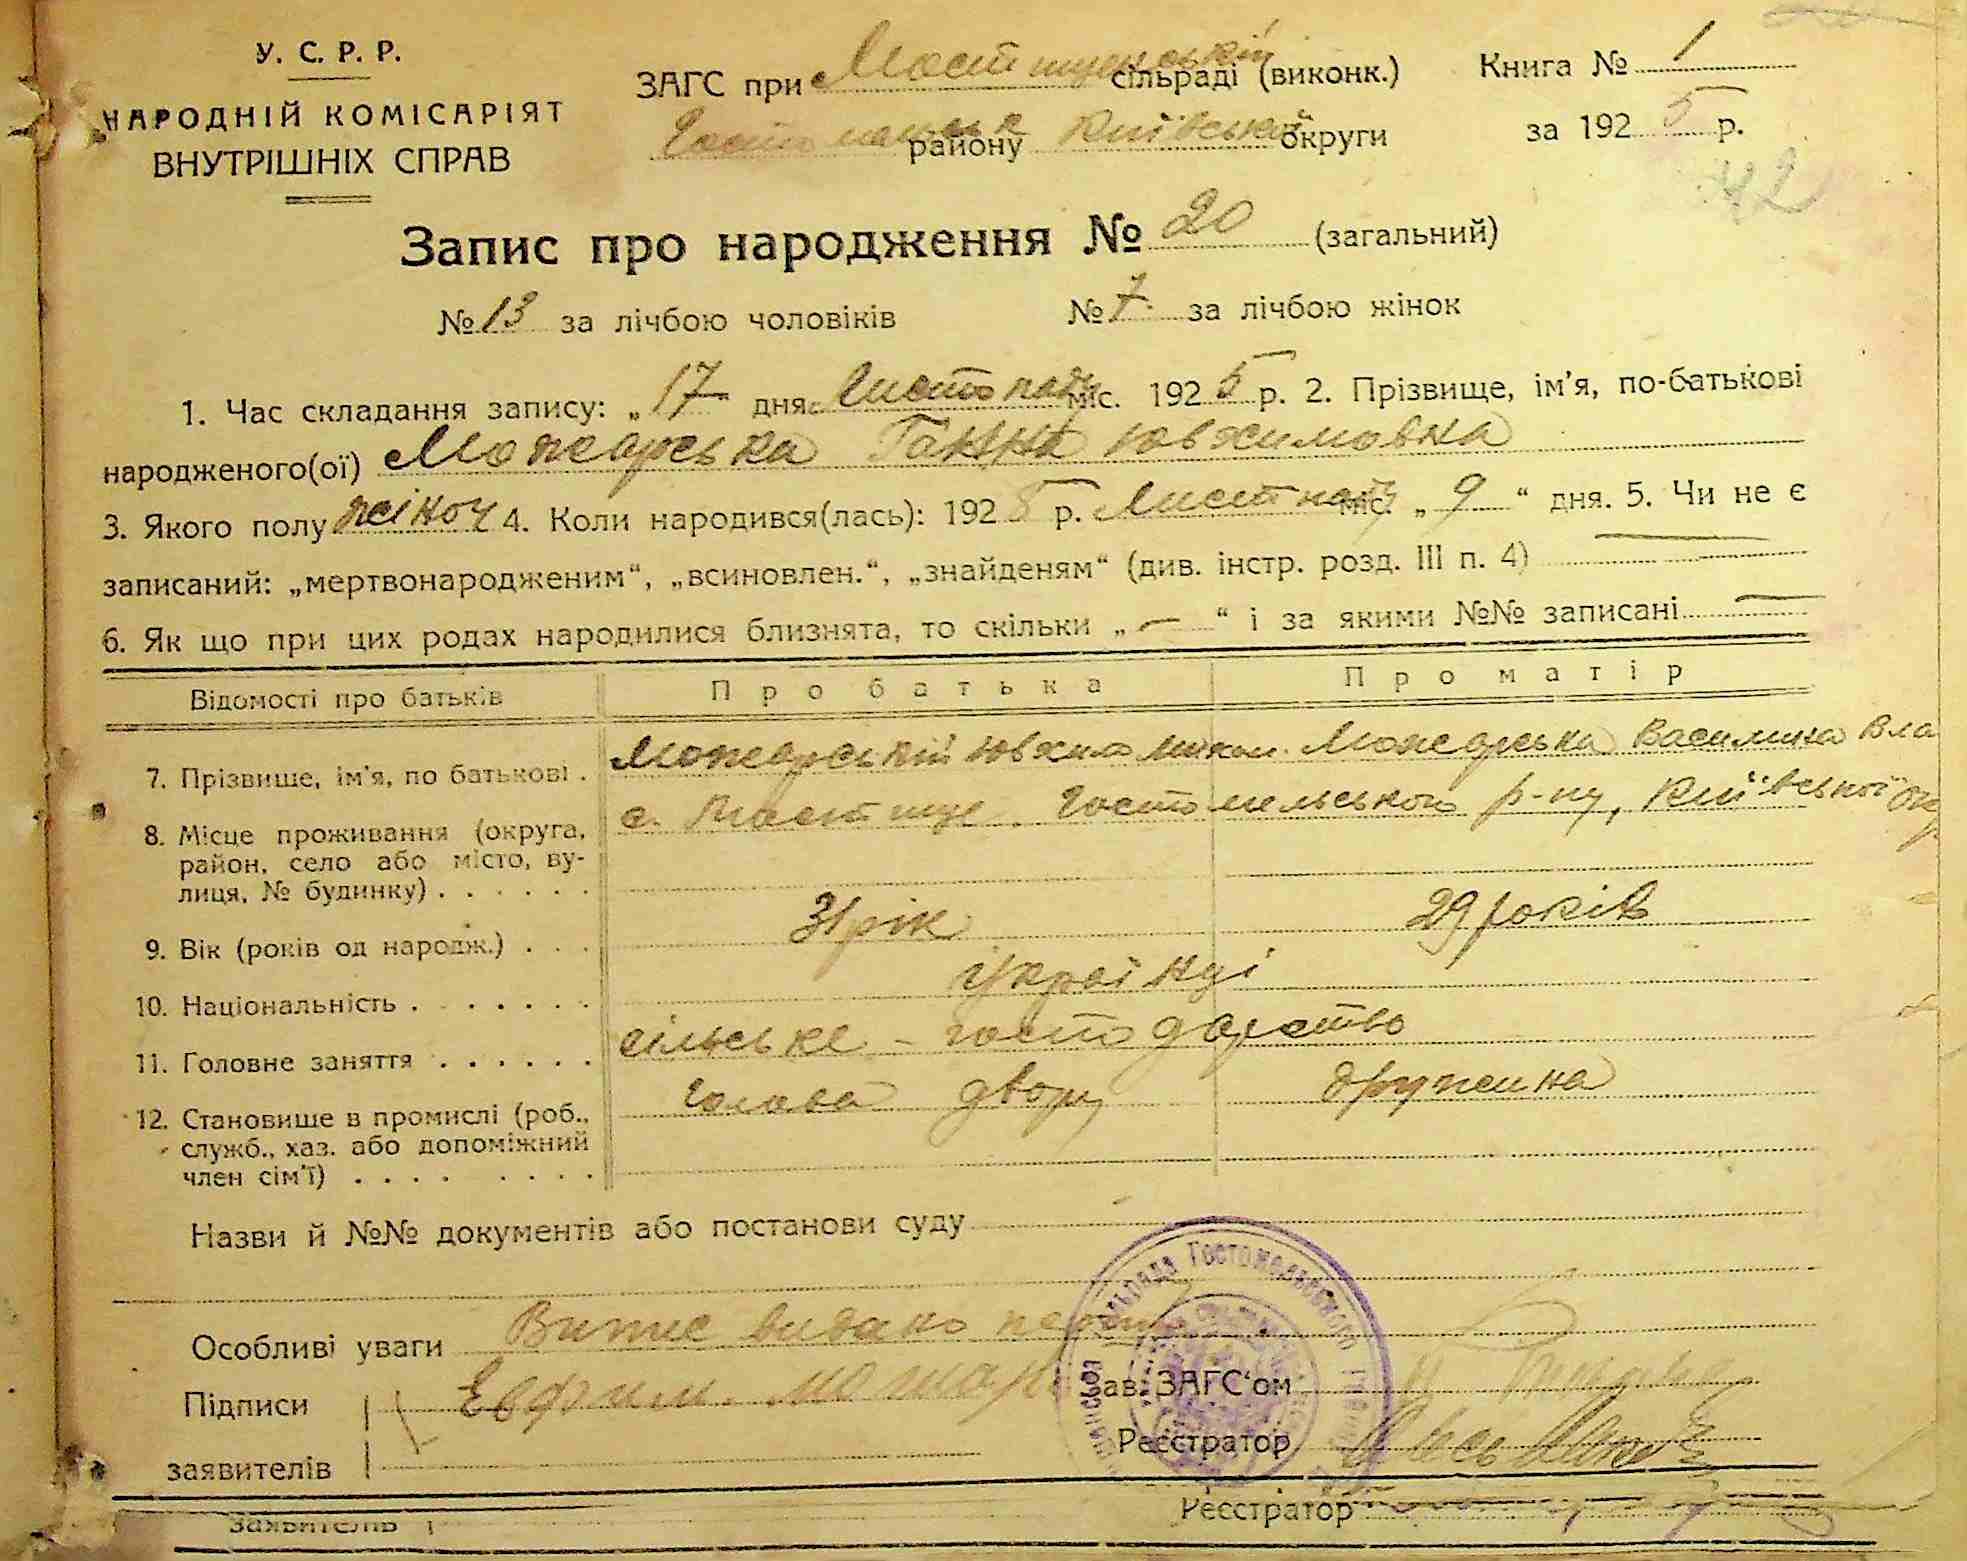 У. С. Р. Р.
НАРОДНІЙ КОМІСАРІЯТ
ВНУТРІШНІХ СПРАВ
ЗАГС при Мостищенській сільраді (виконк.)
району Київської округи
Книга № 1
за 1925 р.
42
Запис про народження № 20 (загальний)
№ 13 за лічбою чоловіків № 7 за лічбою жінок
1. Час складання запису: „17“ дня Листопаду міс. 1925 р. 2. Прізвище, ім'я, по-батькові
народженого(ої) Можарська Ганна Ювхимовна
3. Якого полу жіноч 4. Коли народився(лась): 1925 р. Листопаду міс. „9“ дня. 5. Чи не є
записаний: „мертвонародженим“, „всиновлен.“, „знайденям“ (див. інстр. розд. III п. 4) —
6. Як що при цих родах народилися близнята, то скільки „—“ і за якими №№ записані —
Відомості про батьків Про батька Про матір
7. Прізвище, ім'я, по батькові . Можарській Ювхим Микол. Можарська Василина Вла
8. Місце проживання (округа, с. Мостище Гостомельського р-ну, Київської Окр
район, село або місто, ву-
лиця, № будинку) . . . . . .
9. Вік (років од народж.) . . . 31 рік 29 років
10. Національність . . . . . . . українці
11. Головне заняття . . . . . . сільське - господарство
12. Становище в промислі (роб., голова двору дружина
служб., хаз. або допоміжний
член сім'ї) . . . . . . . .
Назви й №№ документів або постанови суду
Особливі уваги Витяг видано
Підписи Евфим. Можар
заявителів
Зав. ЗАГС'ом
Реєстратор
Гостомельського
Заявителів
Реєстратор